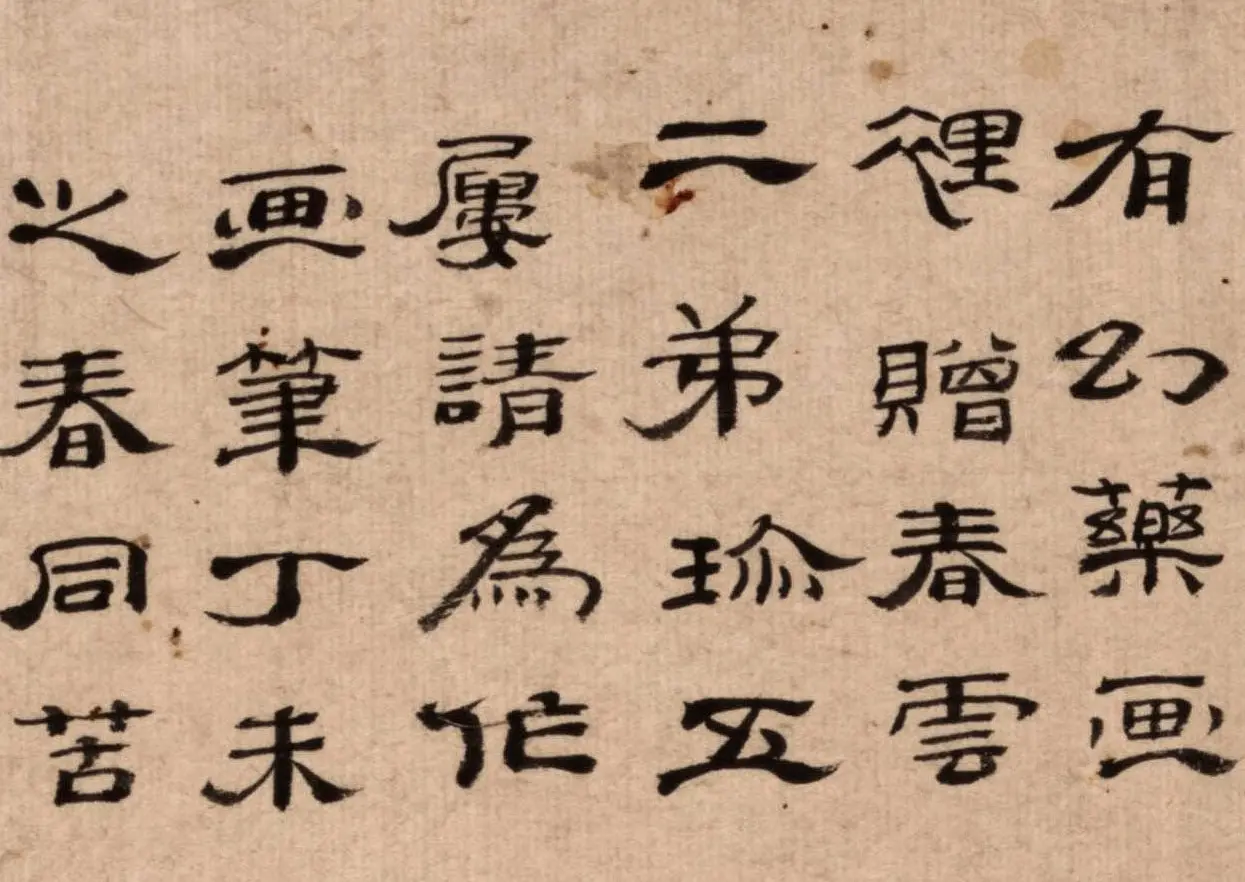 有幻藥画
裡贈春雲
二弟珎五
屢請為作
画筆丁未
之春同苦